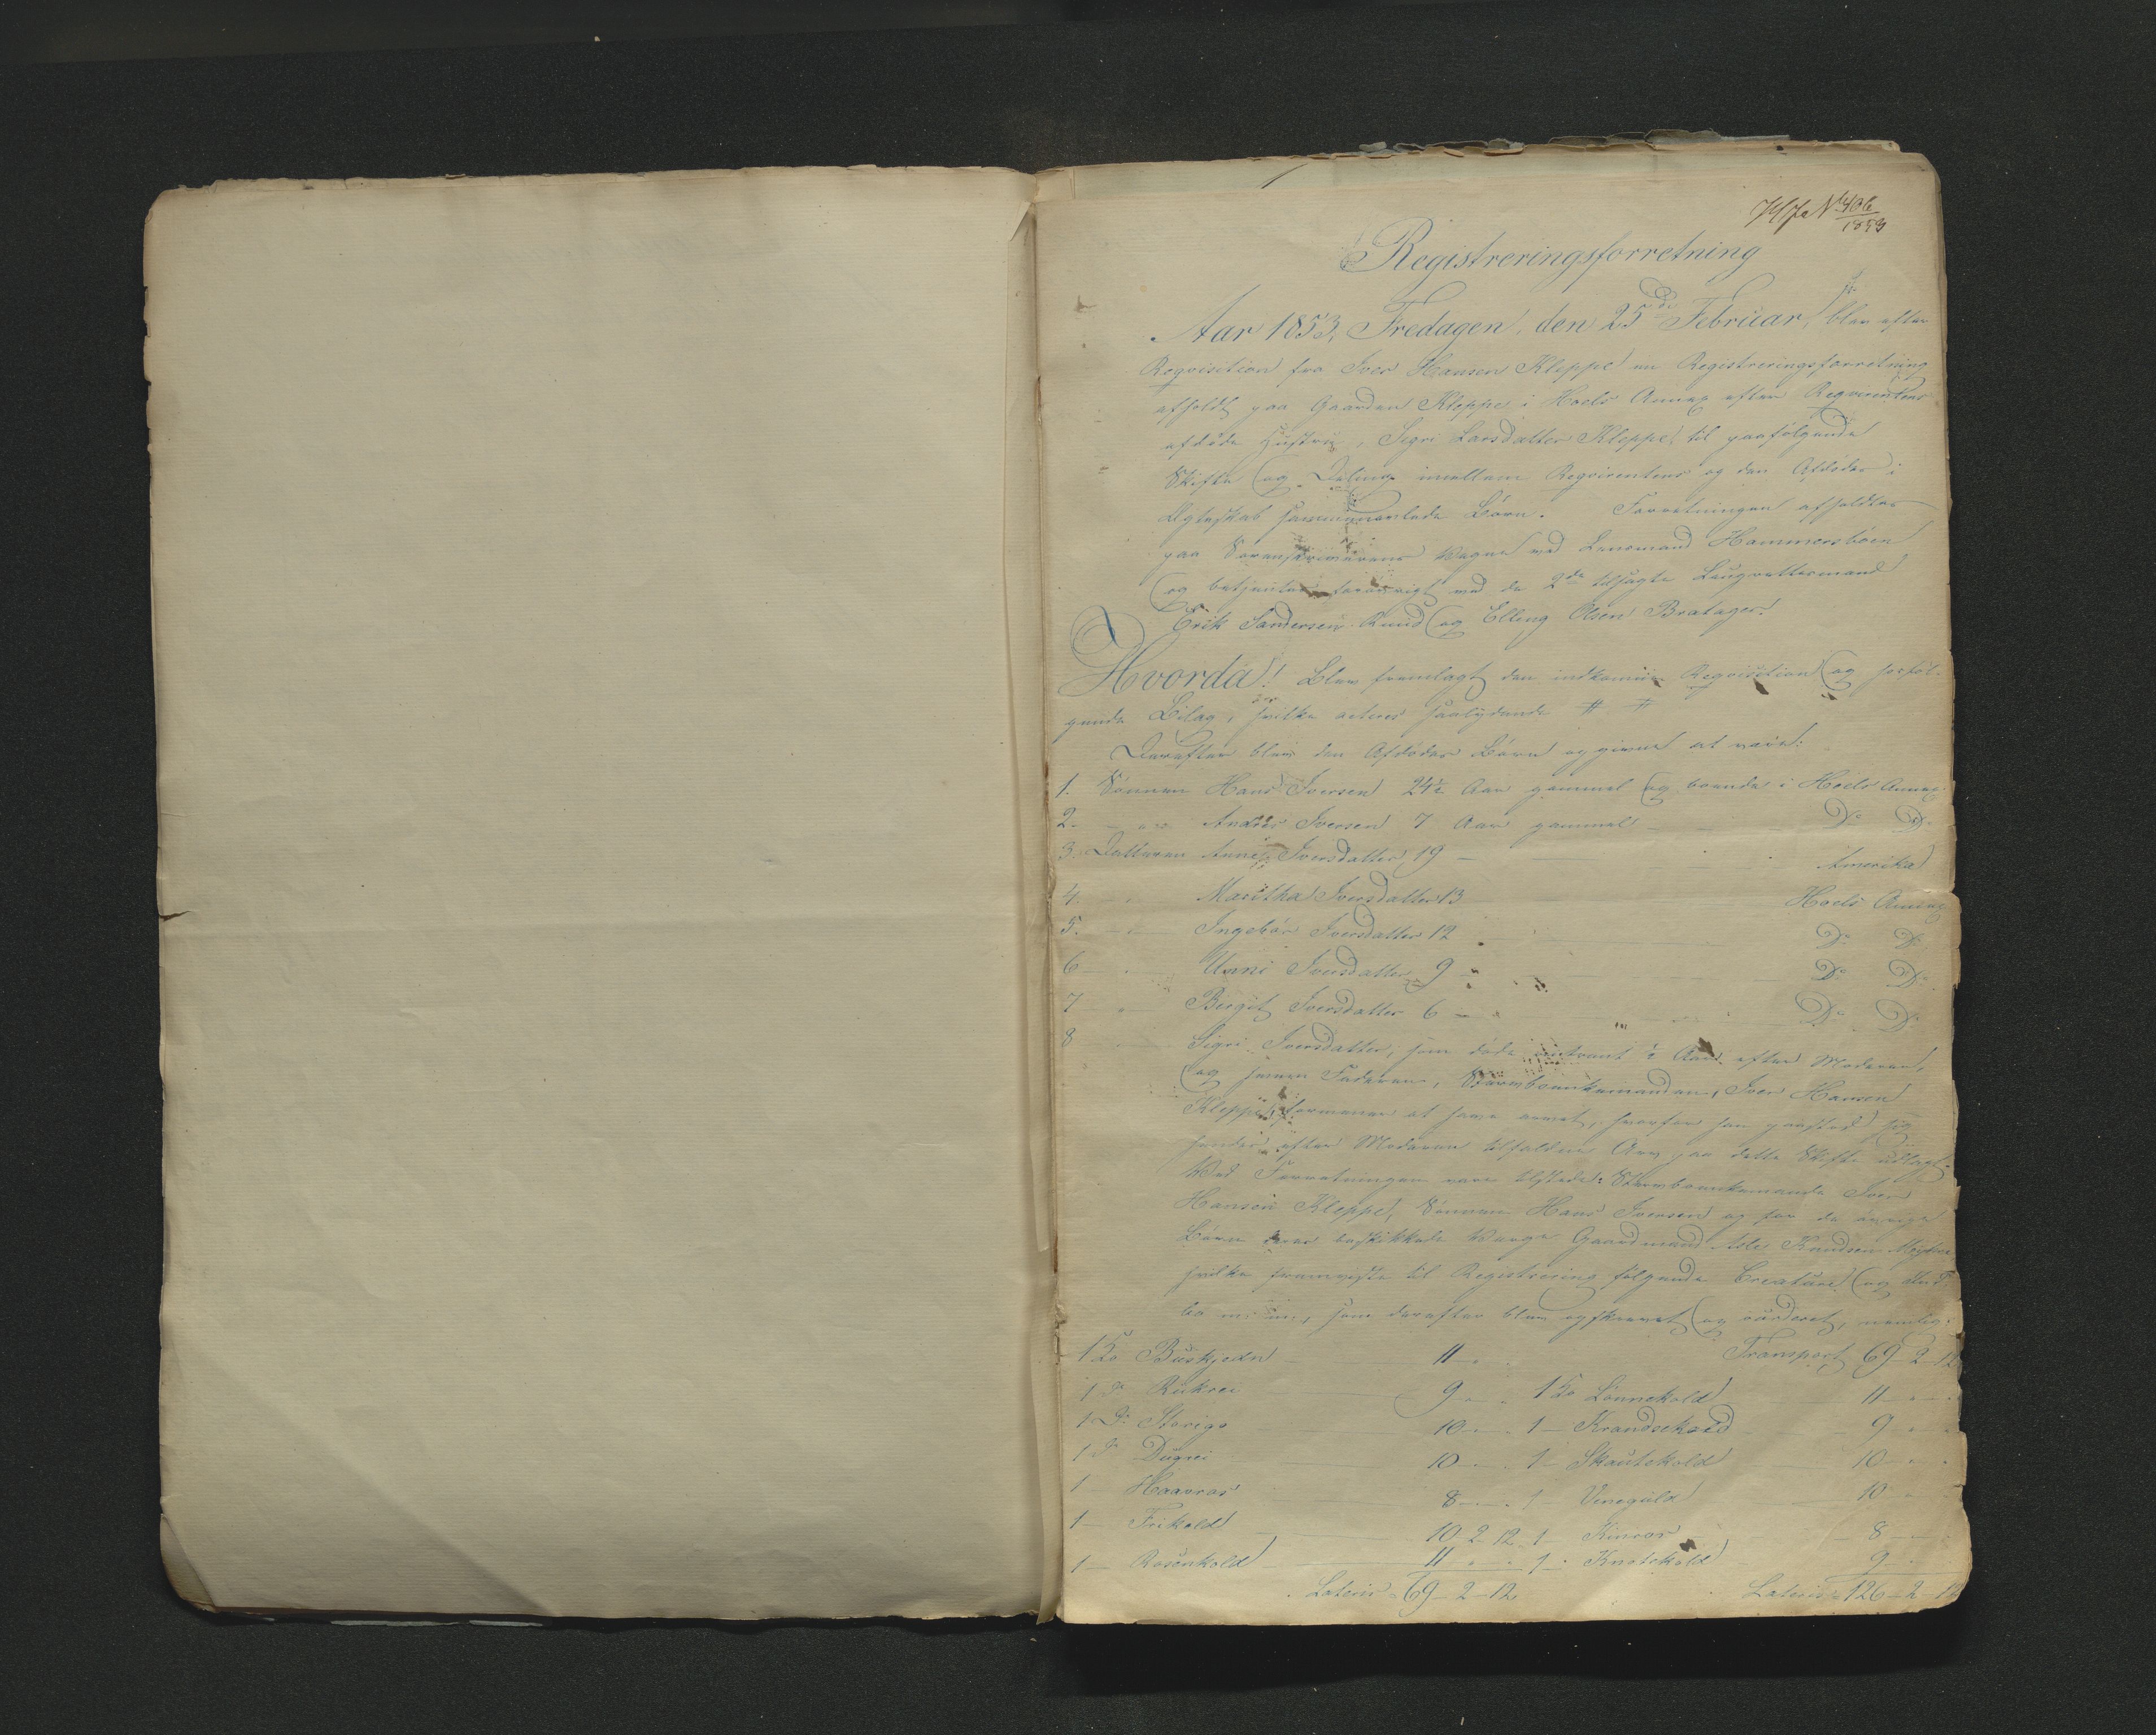 No 406
1853
Registreringsforretning
Aar 1853, Fredagen, den 25de Februar, blev efter
Reqvisition fra Iver Hansen Kleppe en Registreringsforretning
afholdt paa Gaarden Kleppe i Hoels Annex efter Reqvirentens
afdöde Hustru, Sigri Larsdatter Kleppe, til paafölgende
Skifte og Deling imellem Reqvirenten og den Afdödes i
Ægteskab sammenavlede Börn. Forretningen afholdtes
paa Sorenskriverens Vegne med Lensmand Hammersböen
og betjentes forövrigt med de 2de tilsagte Laugrettesmænd
Erik Sandersen Ruud og Elling Olsen Bratager.
Hvorda! Blev fremlagt den indkomne Reqvisition og
Bilag, hvilke acteres saalydende # #
Derefter blev den Afdödes Börn opgivne at være:
1. Sönnen Hans Iversen 24½ Aar gammel og boende i Hoels Annex
2. Andres Iversen 7 Aar gammel Do Do
3. Datteren Anne Iversdatter 19 Amerika
4. Maritha Iversdatter 13 Hoels Annex
5. Ingebör Iversdatter 12 Do Do
6 Unni Iversdatter 9 Do Do
7 Birgit Iversdatter 6 Do Do
8 Sigri Iversdatter, som döde omtrent ½ Aar efter Moderen,
og hvem Faderen, Stervboenkemanden, Iver Hansen
Kleppe, formener at have arvet, hvorfor han paastod sig
hendes efter Moderen tilfaldne Arv paa dette Skifte udlagt.
Ved Forretningen vare tilstede: Stervboenkemanden Iver
Hansen Kleppe, Sönnen Hans Iversen og for de övrige
Börn deres beskikkede Værge Gaardmand Asle Knudsen
hvilke fremviste til Registrering fölgende Creature og Ind-
bo m: m:, som derefter blev opskrevet og vurderet, nemlig:
1 Ko Buskjedn 11 Transport 69-2-12
1 Do Rukrei 9 1 Ko Lönnekold 11
1 Do Storigo 10 1 Krandsekold 9
1 Do Dugrei 10 1 Skautekold 10
1 Haavros 8 1 Veneguld 10
1 Frikold 10 2 12 1 Kinros 8
1 Rosenkold 11 1 Knotekold 9
Lateris 69-2-12 Lateris 126-2-12